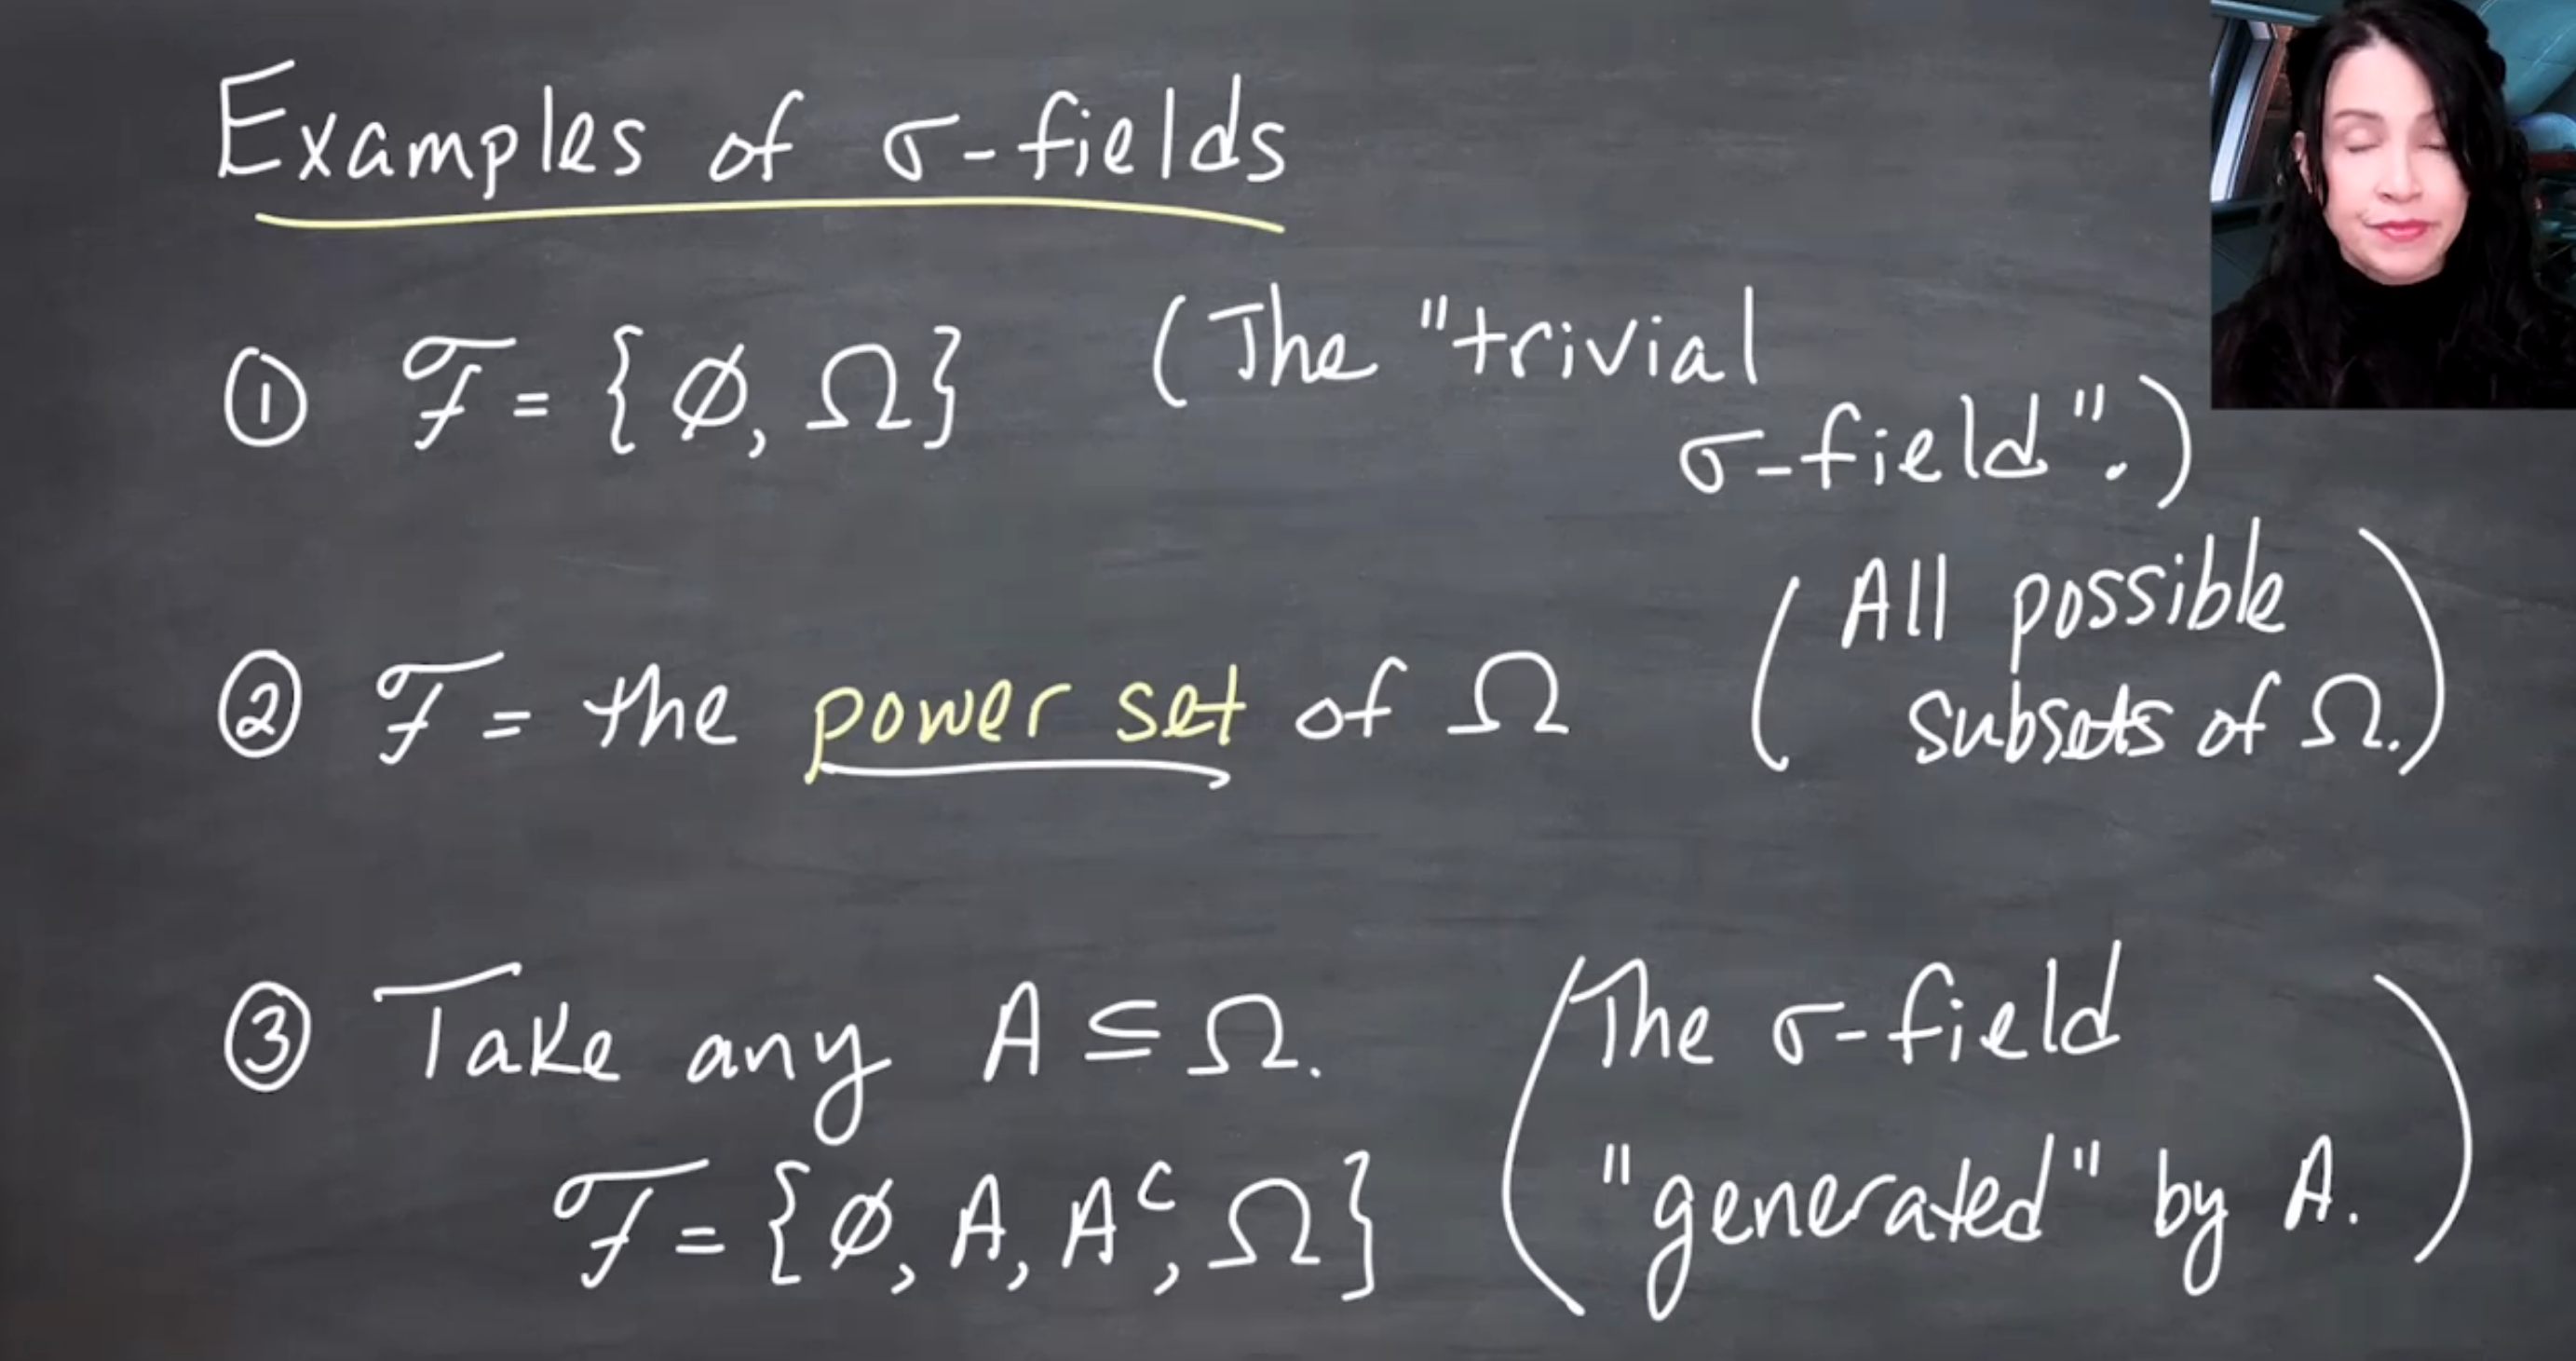 Examples of σ-fields
① ℱ = {∅, Ω} (The "trivial
σ-field".)
② ℱ = the power set of Ω
(All possible
subsets of Ω.)
③ Take any A ⊆ Ω.
ℱ = {∅, A, Aᶜ, Ω}
(The σ-field
"generated" by A.)